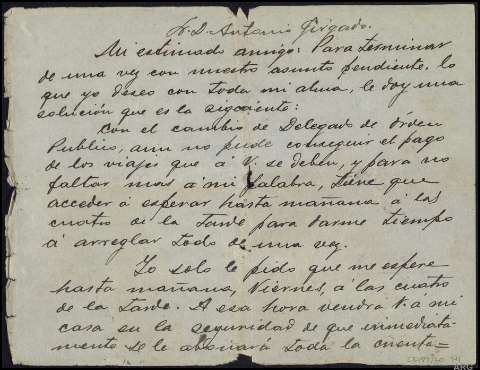 Sr. D. Antonio Girgado.
Mi estimado amigo: Para terminar
de una vez con nuestro asunto pendiente, lo
que yo deseo con toda mi alma, le doy una
solución que es la siguiente:
Con el cambio de Delegado de Orden
Publico, aun no pude conseguir el pago
de los viajes que á V. se deben, y para no
faltar mas á mi palabra, tiene que
acceder á esperar hasta mañana á las
cuatro de la tarde para darme tiempo
á arreglar todo de una vez.
Yo solo le pido que me espere
hasta mañana, Viernes, á las cuatro
de la tarde. A esa hora vendrá V. a mi
casa en la seguridad de que inmediata-
mente se le abonará toda la cuenta=
ARG